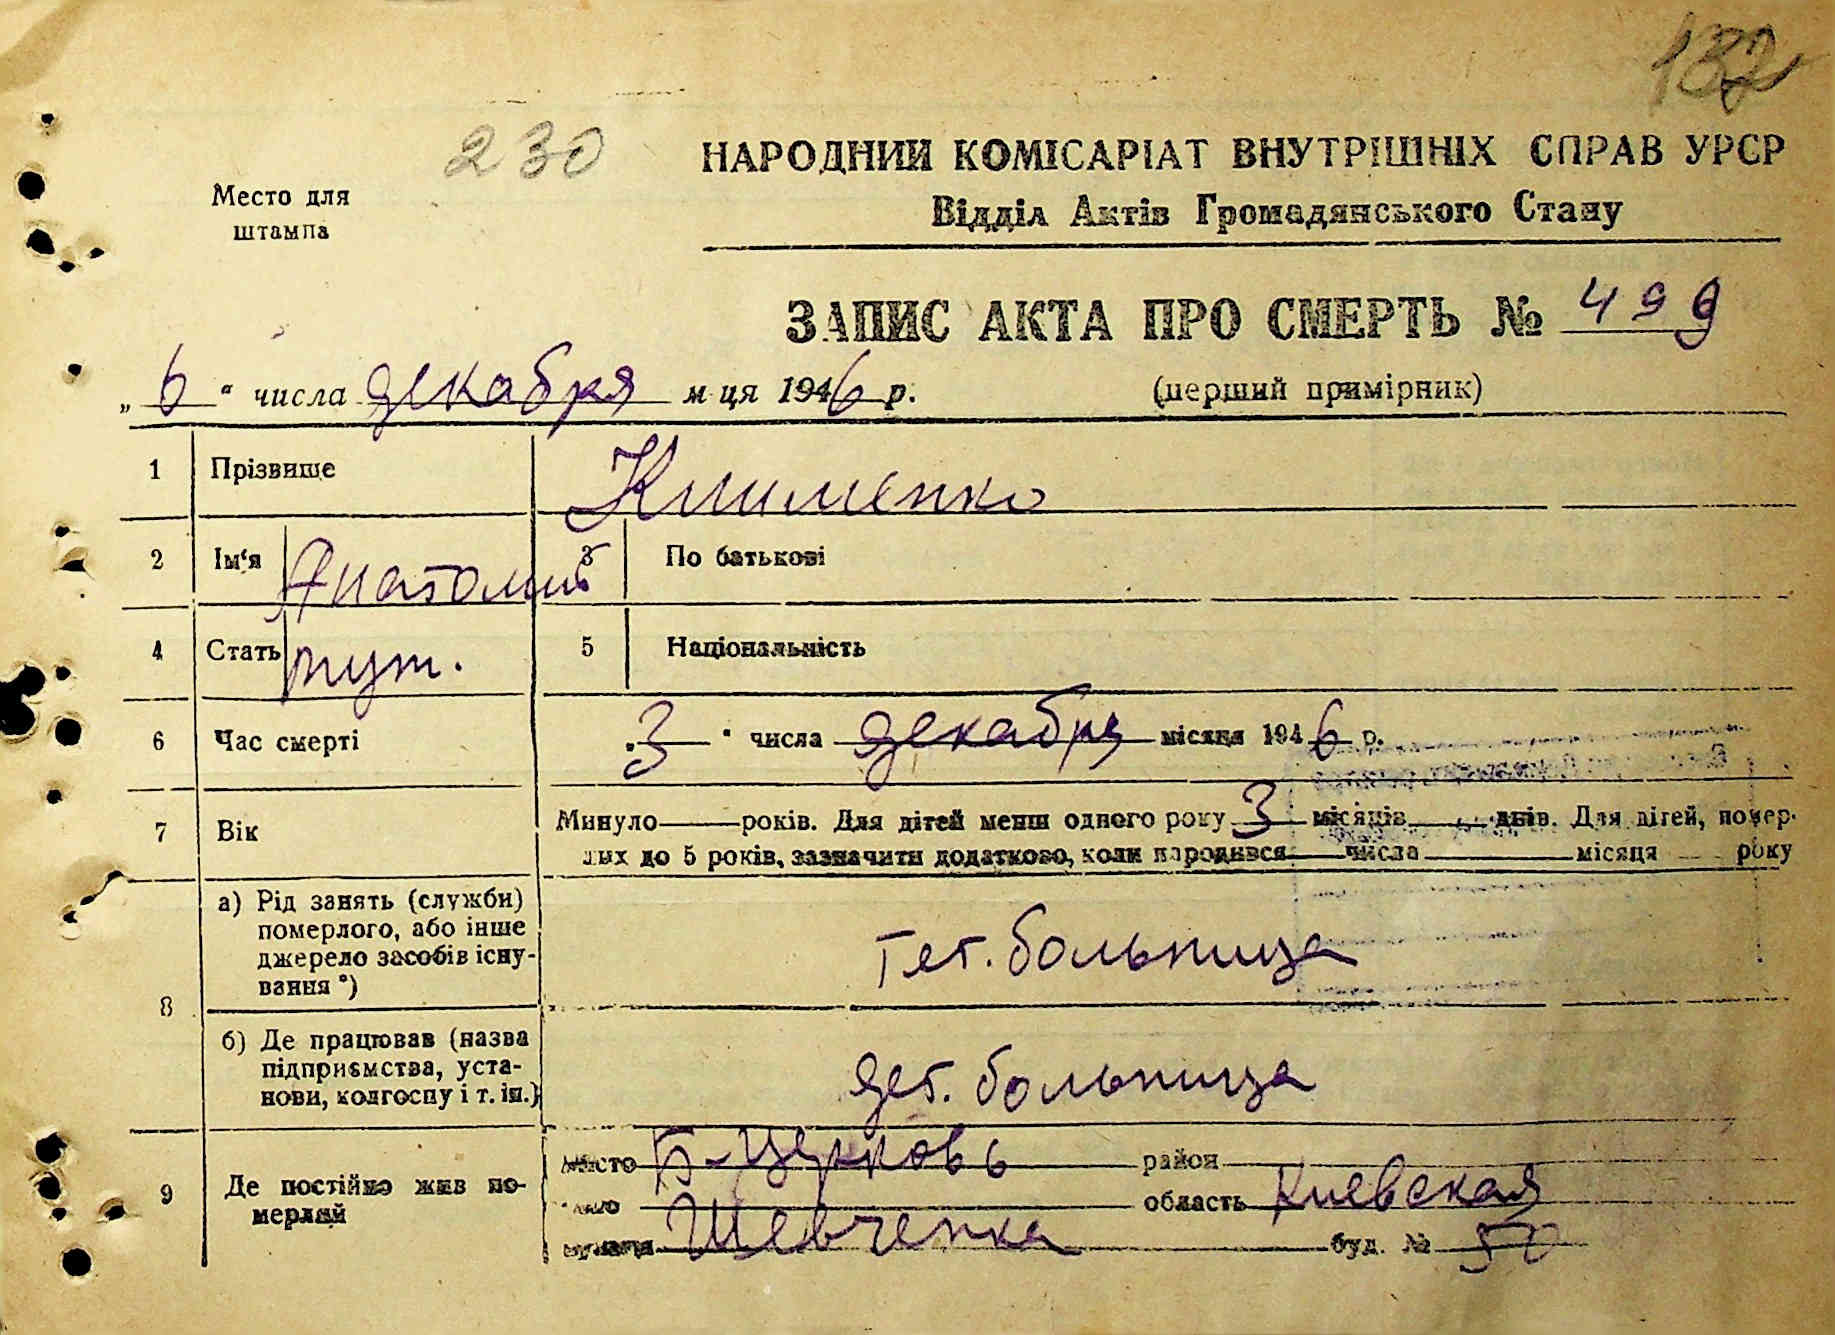 132
230
НАРОДНИЙ КОМІСАРІАТ ВНУТРІШНІХ СПРАВ УРСР
Відділ Актів Громадянського Стану
Место для
штампа
ЗАПИС АКТА ПРО СМЕРТЬ № 499
„6“ числа декабря м-ця 1946 р.
(перший примірник)
1 Прізвище Клименко
2 Ім‘я Анатолий 3 По батькові
4 Стать муж. 5 Національність
6 Час смерті „3“ числа декабря місяця 1946 р.
7 Вік Минуло — років. Для дітей менш одного року 3 місяців — днів. Для дітей, помер-
лих до 5 років, зазначити додатково, коли народився — числа — місяця — року
8 а) Рід занять (служби)
померлого, або інше
джерело засобів існу-
вання *)
Дет. больница
б) Де працював (назва
підприємства, уста-
нови, колгоспу і т. ін.)
дет. больница
9 Де постійно жив по-
мерлий
місто Б-Церковь район
село область Киевская
вулиця Шевченка буд. № 50